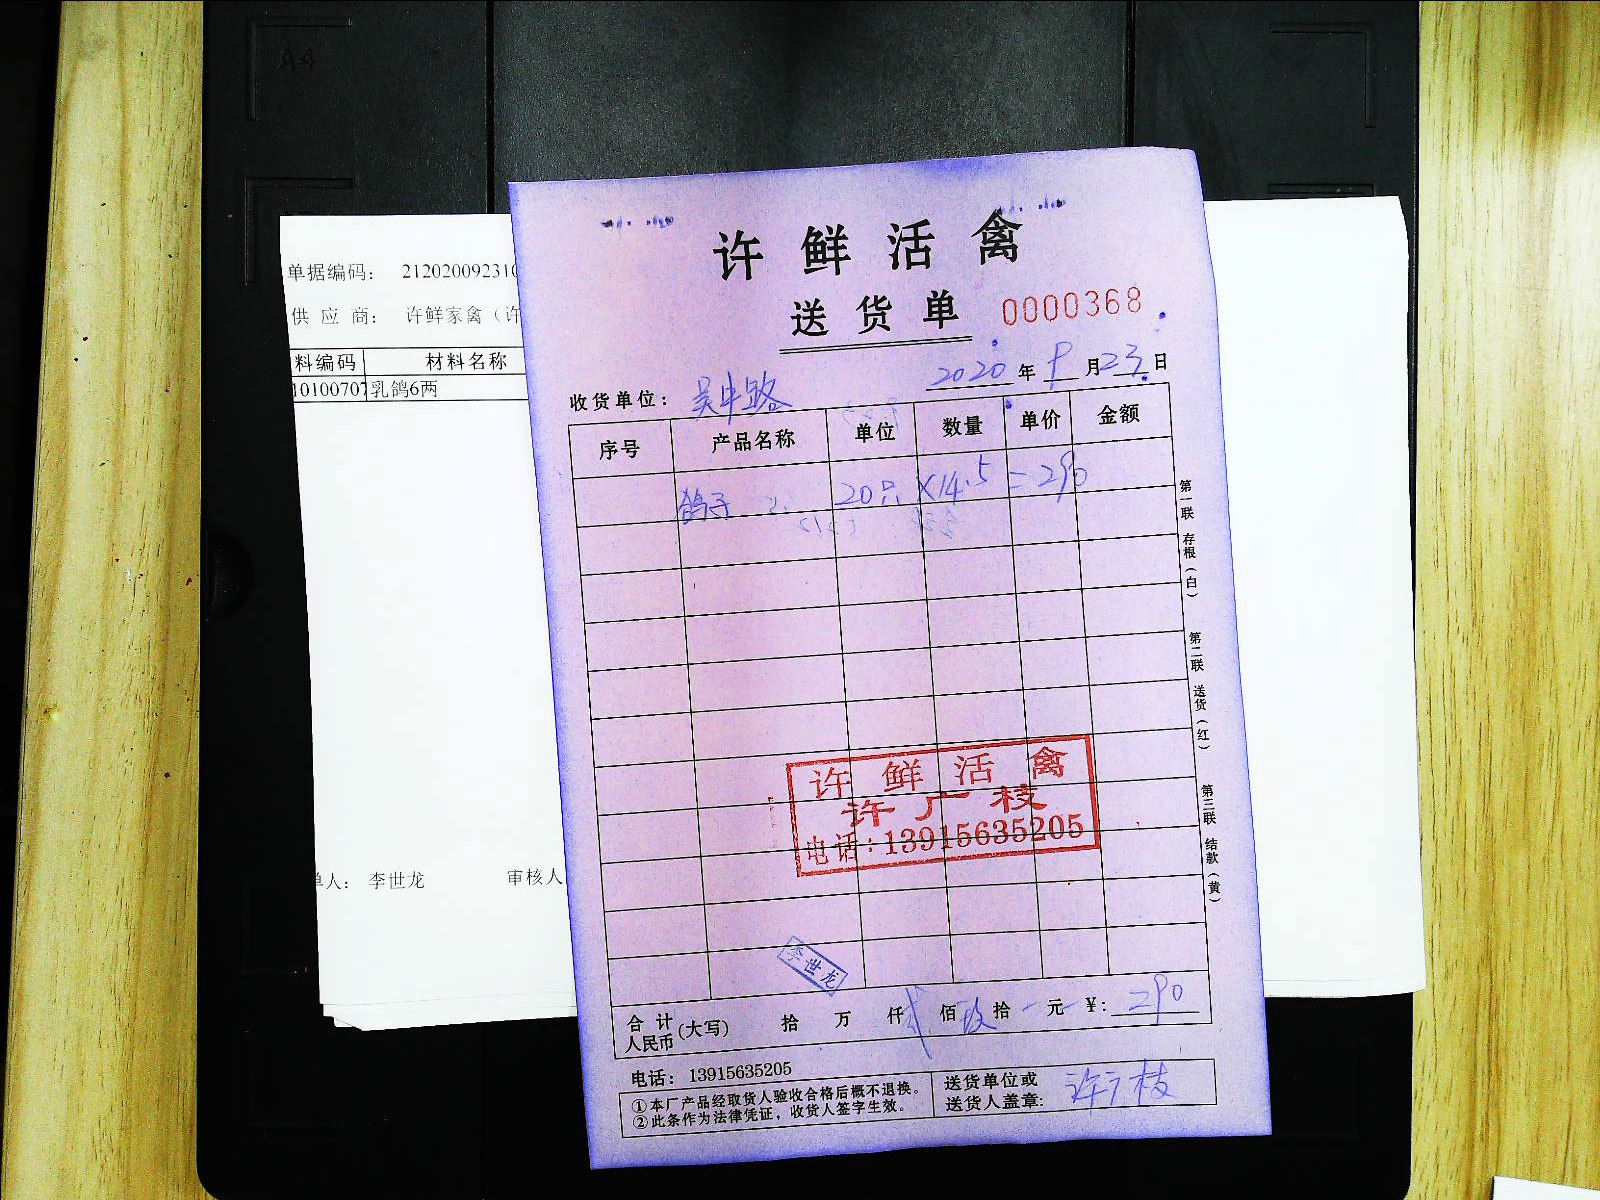 单据编码： 21202009231
供 应 商： 许鲜家禽（许
料编码 材料名称
10100707 乳鸽6两
单人： 李世龙 审核人
许鲜活禽
送货单 0000368
2020 年 9 月 23 日
收货单位： 吴中路
序号 产品名称 单位 数量 单价 金额
鸽子 20只 ×14.5 =290
第一联 存根（白）
第二联 送货（红）
第三联 结款（黄）
许鲜活禽
许广枝
电话：13915635205
李世龙
合计人民币(大写) 拾 万 仟 贰 佰 玖 拾 元 ¥: 290
电话： 13915635205
①本厂产品经取货人验收合格后概不退换。
②此条作为法律凭证，收货人签字生效。
送货单位或
送货人盖章: 许广枝